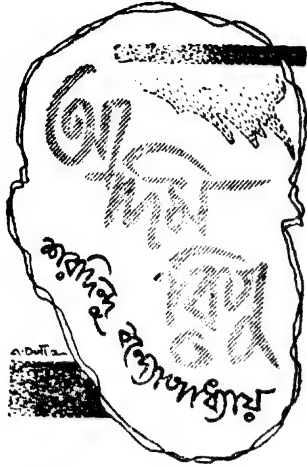 আদিম
রিপু
শরদিন্দু বন্দ্যোপাধ্যায়